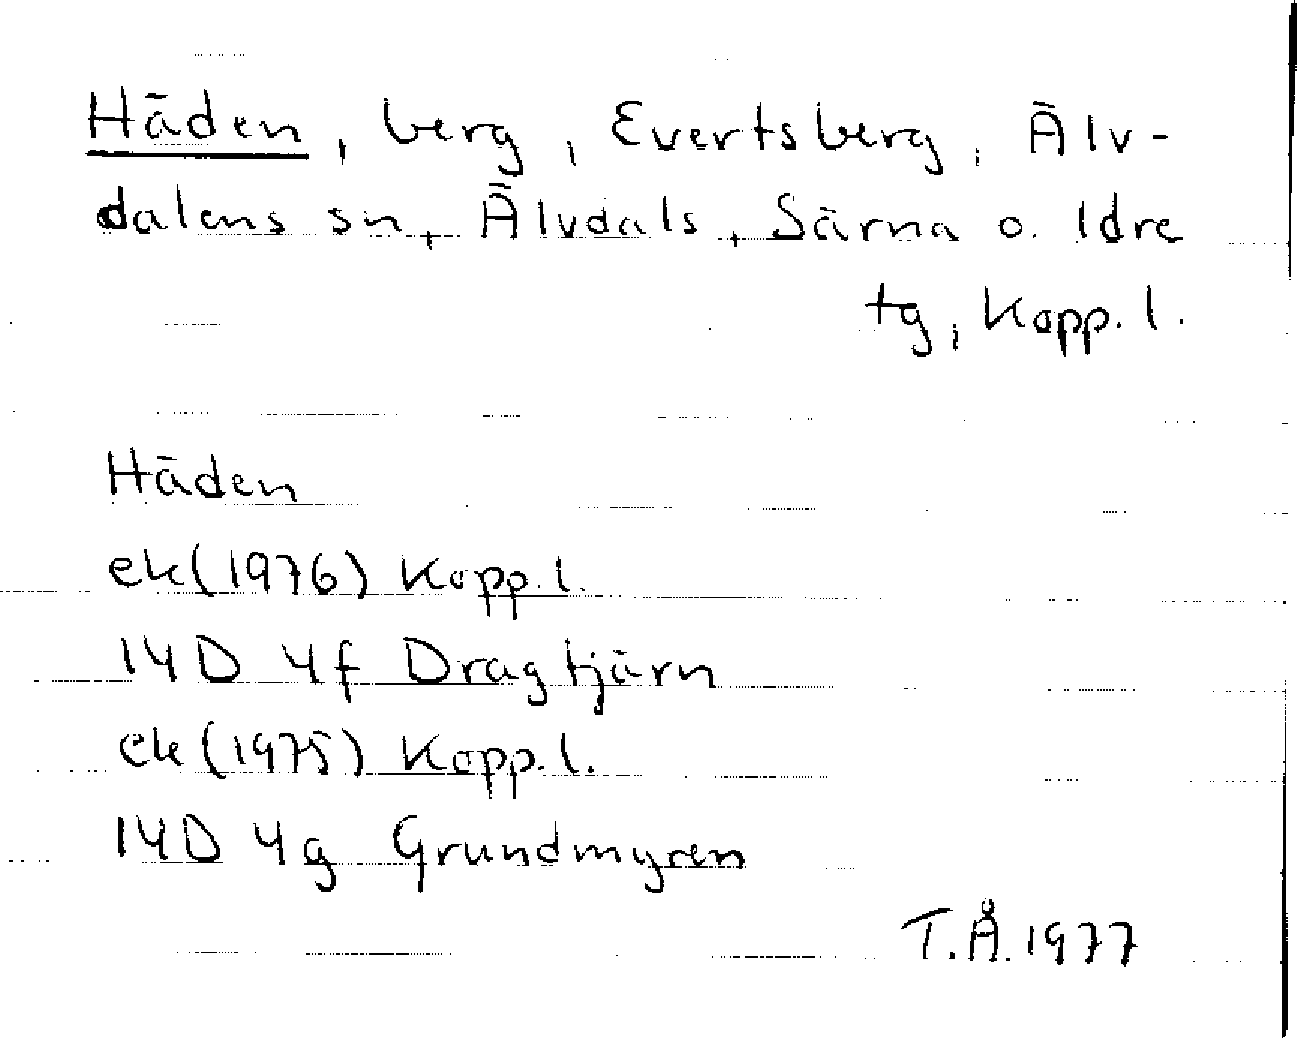 Häden, berg, Evertsberg, Älv-
dalens sn, Älvdals, Särna o. Idre
tg, Kopp. l.
Häden
ek(1976) Kopp. l.
14D 4f Dragtjärn
ek(1975) Kopp. l.
14D 4g Grundmyren
T.Å. 1977